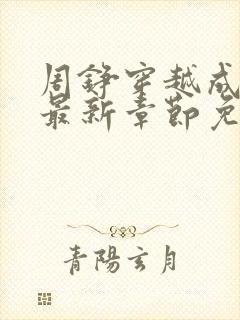 周铮穿越成
最新章节免
青陽玄月